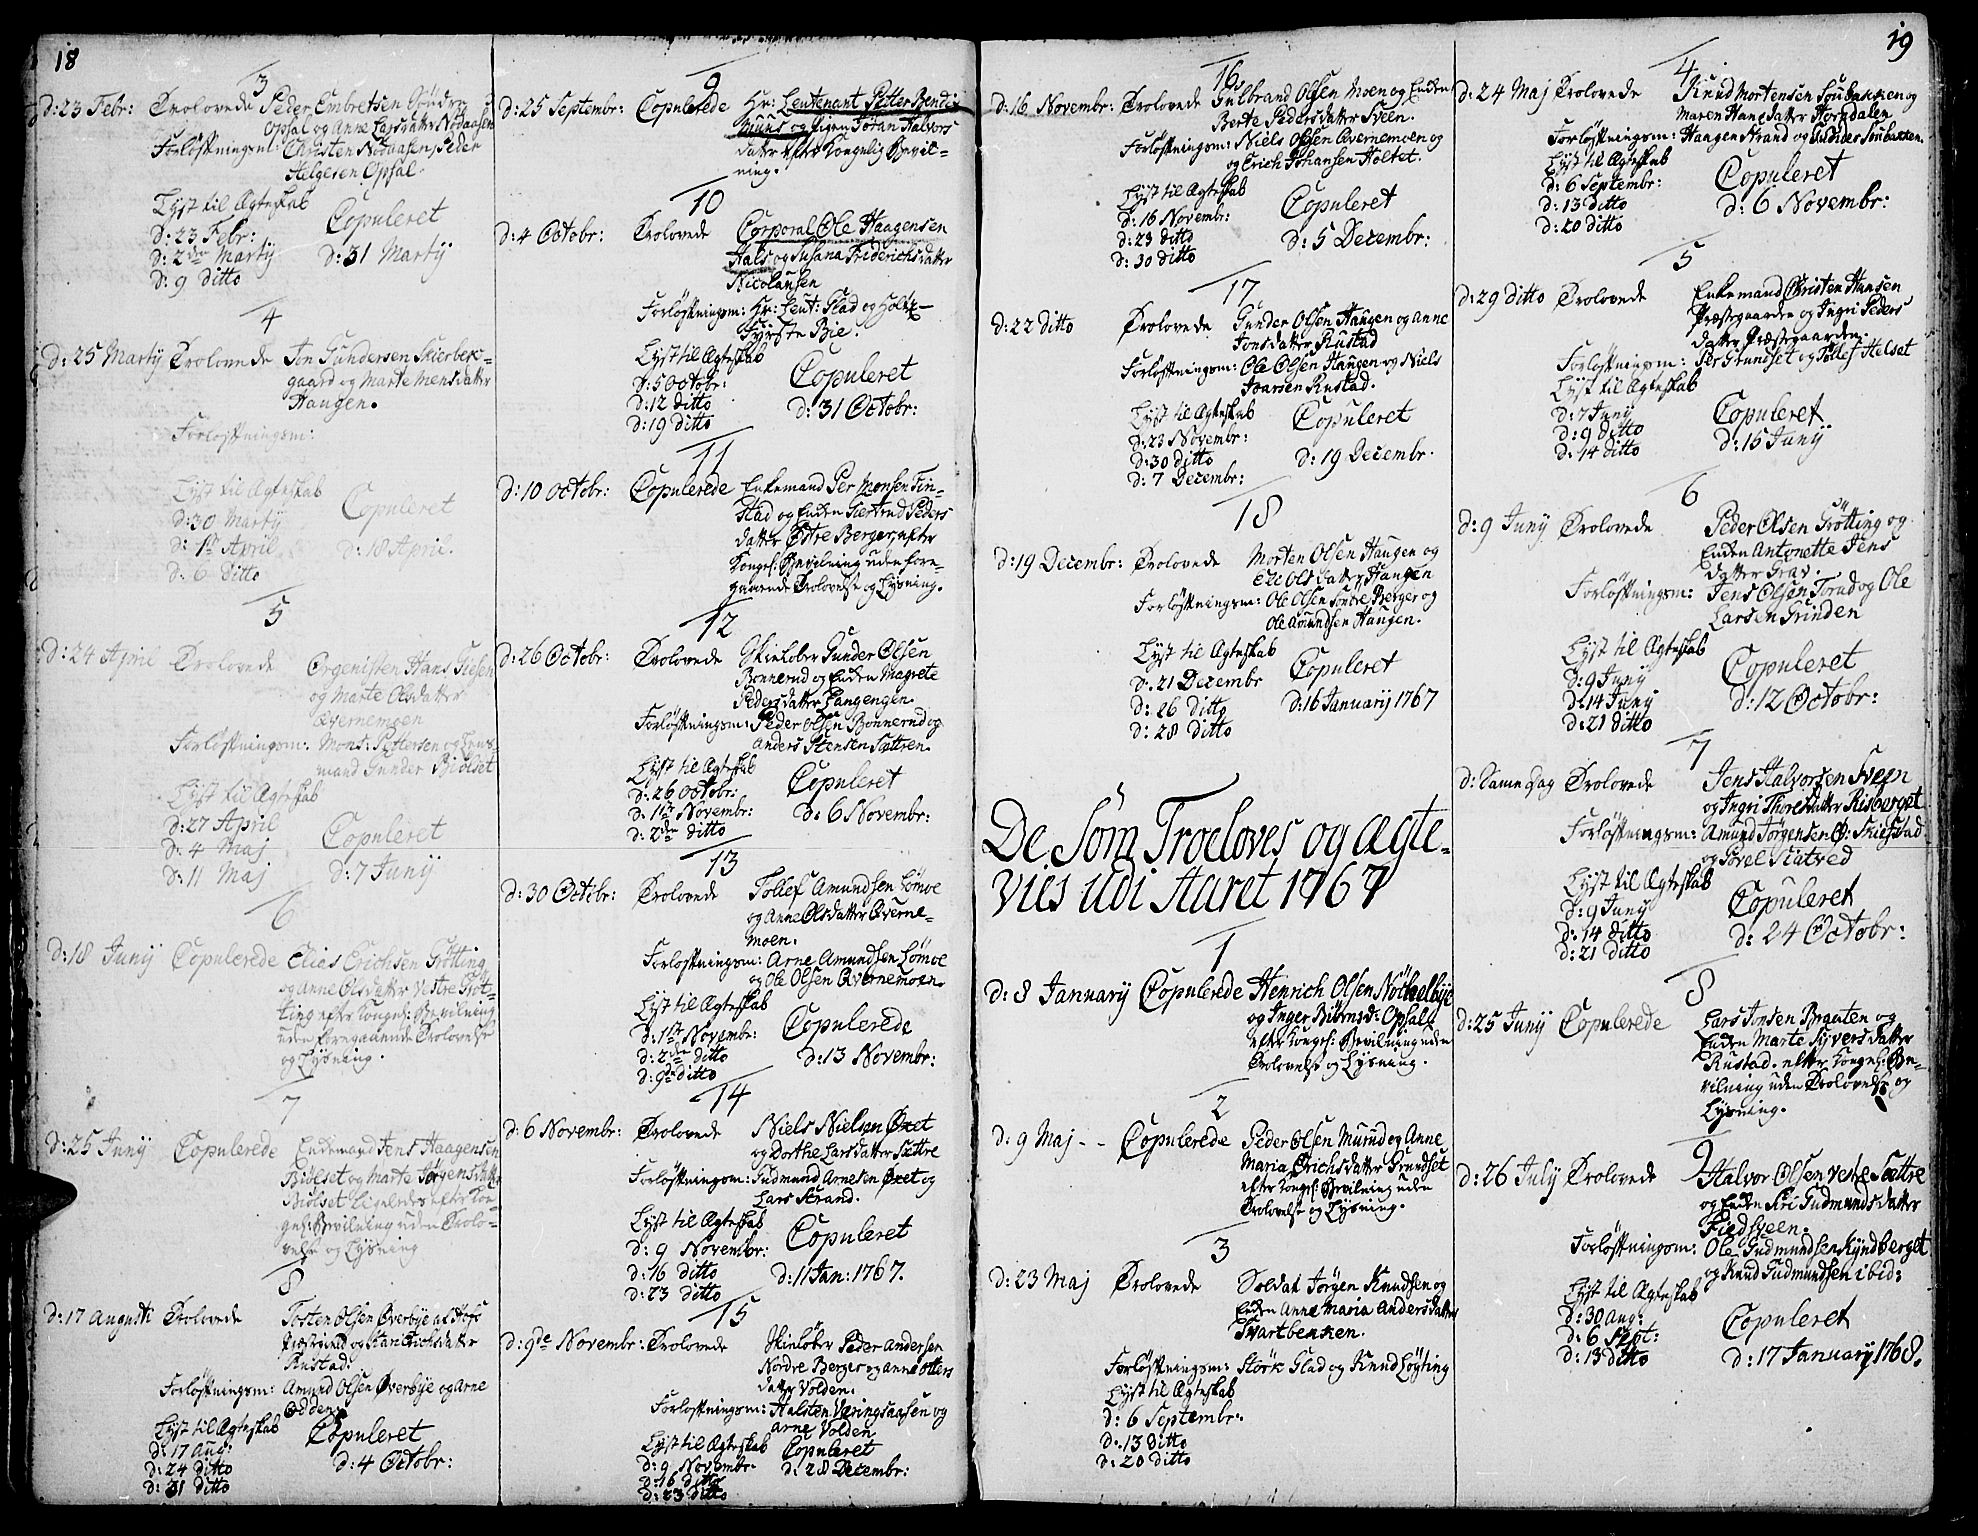 18
3
d: 23 Febr: Trolovede Peder Embretsen Søndre
Opsal og Anne Larsdatter Nodaasen
Forløftningsm: Christen Nodaasen, Peder
Helgesen Opsal.
Lyst til Ægteskab
d: 23 Febr: Copuleret
d: 2de Martÿ d: 31 Martÿ
d: 9 ditto
4
d: 25 Martÿ Trolovede Jon Gundersen Skierbek-
gaard og Marte Mensdatter
Haugen.
Forløftningsm:
Lyst til Ægteskab
d: 30 Martÿ Copuleret
d: 1te April d: 18 April.
d: 6 ditto
5
d: 24 April Trolovede Orgenisten Hans
og Marte Olsdatter
Qvernemoen
Forløftningsm: Mons: Pettersen og Lens-
mand Gunder Biølset
Lyst til Ægteskab
d: 27 April Copuleret
d: 4 Maj
d: 11 Maj d: 7 Junÿ
6
d: 18 Junÿ Copulerede Elias Erichsen Grøtting
og Anne Olsdatter Vestre Grøt-
ting efter Kongel: Bevilning
uden foregaaende Trolovelse
og Lysning.
7
d: 25 Junÿ Copulerede Enckemand Jens Haagensen
Biølset og Marte Jørgensdatter
Biølset ligeledes efter Kon-
gel: Bevilning uden Trolo-
velse og Lysning
8
d: 17 Augusti Trolovede Tosten Olsen Øverbye
og Kari Erichsdatter
Rustad.
Forløftningsm: Amund Olsen Øverbye og Arne
Odden.
Lyst til Ægteskab Copuleret
d: 17 Aug:
d: 24 ditto d: 4 Octobr:
d: 31 ditto
9
d: 25 Septembr: Copulerede Hr: Leutenant Petter Bendix
Muus og Pigen Joran Halvors
datter efter Kongelig Bevil-
ning.
10
d: 4 Octobr: Trolovede Corporal Ole Haagensen
Hals og Susana Friderichsdatter
Nicolausen
Forløftningsm: Hr: Leut: Flad og Holtz-
Førster Bie.
Lyst til Ægteskab
d: 5 Octobr: Copuleret
d: 12 ditto d: 31 Octobr:
d: 19 ditto
11
d: 10 Octobr: Copulerede Enkemand Per Monsen Fin-
stad og Enken Giertrud Peders
datter Østre Berger, efter
Kongel: Bevilning uden fore-
gaaende Trolovelse og Lysning.
12
d: 26 Octobr: Trolovede Skieløber Gunder Olsen
Bonnerud og Enken Magrete
Pedersdatter Langengen.
Forløftningsm: Peder Olsen Bonnerud og
Anders Stensen Sættren.
Lyst til Ægteskab
d: 26 Octobr: Copuleret
d: 1te Novembr: d: 6 Novembr:
d: 2de ditto
13
d: 30 Octobr: Trolovede Tollef Amundsen Lømoe
og Anne Olsdatter Qverne-
moen.
Forløftningsm: Arne Amundsen Lømoe
og Ole Olsen Qvernemoen.
Lyst til Ægteskab
d: 1te Novembr: Copulerede
d: 2de ditto d: 13 Novembr:
d: 9de ditto
14
d: 6 Novembr: Trolovede Niels Nielsen Øxet
og Dorthe Larsdatter Sættre
Forløftningsm: Gudmund Arnesen Øxet og
Lars Strand.
Lyst til Ægteskab
d: 9 Novembr: Copuleret
d: 16 ditto d: 11 Jan: 1767.
d: 23 ditto
15
d: 9de Novembr: Trolovede Skieløber Peder Andersen
Nordre Berger og Anne Otters
datter Volden.
Forløftningsm: Halsten Væringsaasen og
Arne Volden
Lyst til Ægteskab Copuleret
d: 9 Novembr: d: 28 Decembr:
d: 16 ditto
d: 23 ditto
19
16
d: 16 Novembr: Trolovede Gulbrand Olsen Moen og Enken
Berte Pedersdatter Sveen.
Forløftningsm: Niels Olsen Qvernemoen og
og Erich Johansen Holtet.
Lyst til Ægteskab
d: 16 Novembr: Copuleret
d: 23 ditto d: 5 Decembr:
d: 30 ditto
17
d: 22 ditto Trolovede Gunder Olsen Haugen og Anne
Jonsdatter Rustad
Forløftningsm: Ole Olsen Haugen og Niels
Ivarsen Rustad.
Lyst til Ægteskab
d: 23 Novembr: Copuleret
d: 30 ditto d: 19 Decembr.
d: 7 Decembr:
18
d: 19 Decembr: Trolovede Morten Olsen Haugen og
Eli Olsdatter Haugen
Forløftningsm: Ole Olsen Søndre Berger og
Ole Amundsen Haugen.
Lyst til Ægteskab
d: 21 Decembr Copuleret
d: 26 ditto d: 16 Januarÿ 1767
d: 28 ditto
De som Troeloves og ægte-
vies udi Aaret 1767
1
d: 8 Januarÿ Copulerede Henrich Olsen Nøckelbye
og Inger Biörnsd: Opsal
efter Kongel: Bevilning uden
Trolovelse og Lysning.
2
d: 9 Maj - - Copulerede Peder Olsen Murud og Anne
Maria Erichsdatter Grundset
efter Kongel: Bevilning uden
Trolovelse og Lysning.
3
d: 23 Maj Trolovede Soldat Jørgen Knudsen og
Enken Anne Maria Andersdatter
Svartbekken.
Forløftningsm: Størk Flad og Knud Løgting
Lyst til Ægteskab
d: 6 Septembr:
d: 13 ditto
d: 20 ditto
4
d: 24 Maj Trolovede Knud Mortensen Soubakken og
Maren Hansdatter Horndalen
Forløftningsm: Haagen Strand og Soubakken.
Lyst til Ægteskab
d: 6 Septembr: Copuleret
d: 13 ditto d: 6 Novembr:
d: 20 ditto
5
d: 29 ditto Trolovede Enkemand Christen Hansen
Præstegaarden og Ingri Peders
datter Præstegaarden.
Forløftningsm: Per Grundset og Tollef Helset
Lyst til Ægteskab
d: 7 Junÿ Copuleret
d: 9 ditto d: 15 Junÿ
d: 14 ditto
6
d: 9 Junÿ Trolovede Peder Olsen Grøtting og
Enken Antonette Jens
datter Grav.
Forløftningsm: Jens Olsen Torud og Ole
Larsen Grinden
Lyst til Ægteskab
d: 9 Junÿ Copuleret
d: 14 Junÿ d: 12 Octobr:
d: 21 ditto
7
d: Same Dag Trolovede Jens Halvorsen Sveen
og Ingri Thoresdatter Risberget
Forløftningsm: Amund Jørgensen Ø: Skiefstad
og Povel Statved
Lyst til Ægteskab
d: 9 Junÿ Copuleret
d: 14 ditto d: 24 Octobr:
d: 21 ditto
8
d: 25 Junÿ Copulerede Lars Jonsen Brauten og
Enken Marte Syversdatter
Rustad. efter Kongel: Be-
vilning uden Trolovelse og
Lysning.
9
d: 26 July Trolovede Halvor Olsen Vestre Sættre
og Enken Siri Gudmundsdatter
Kiedsveen.
Forløftningsm: Ole Gudmundsen Kyndberget
og Knud Gudmundsen ibid:
Lyst til Ægteskab
d: 30 Aug: Copuleret
d: 6 Sept:
d: 13 ditto d: 17 Januarÿ 1768.